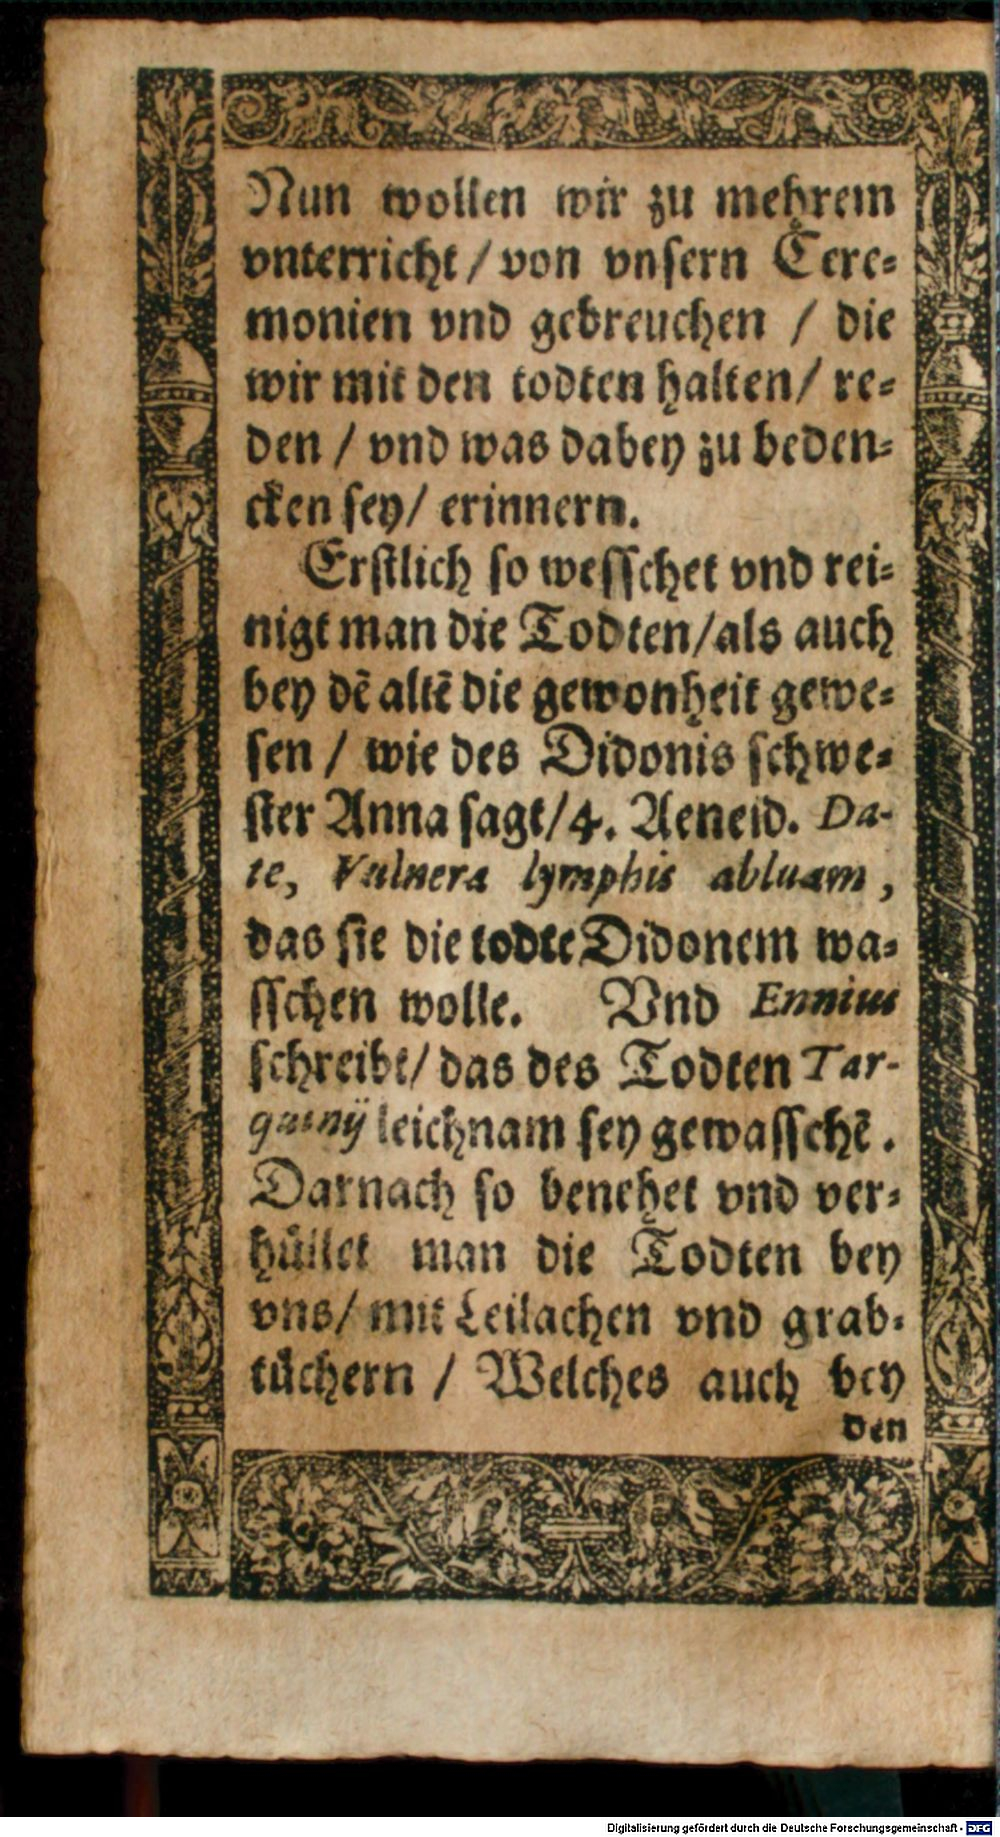 Nun wollen wir zu mehrem
vnterricht / von vnſern Cere⸗
monien vnd gebreuchen / die
wir mit den todten halten / re⸗
den / vnd was dabey zu beden⸗
cken ſey / erinnern.
Erſtlich ſo weſſchet vnd rei⸗
nigt man die Todten / als auch
bey dē altē die gewonheit gewe⸗
ſen / wie des Didonis ſchwe⸗
ſter Anna ſagt / 4. Aeneid. Da-
te, Vulnera lymphis abluam,
das ſie die todte Didonem wa⸗
ſſchen wolle. Vnd Ennius
ſchreibt / das des Todten Tar-
quinÿ leichnam ſey gewaſſchē.
Darnach ſo benehet vnd ver⸗
huͤllet man die Todten bey
vns / mit Leilachen vnd grab⸗
tuͤchern / Welches auch bey
den
Digitalisierung gefördert durch die Deutsche Forschungsgemeinschaft - DFG